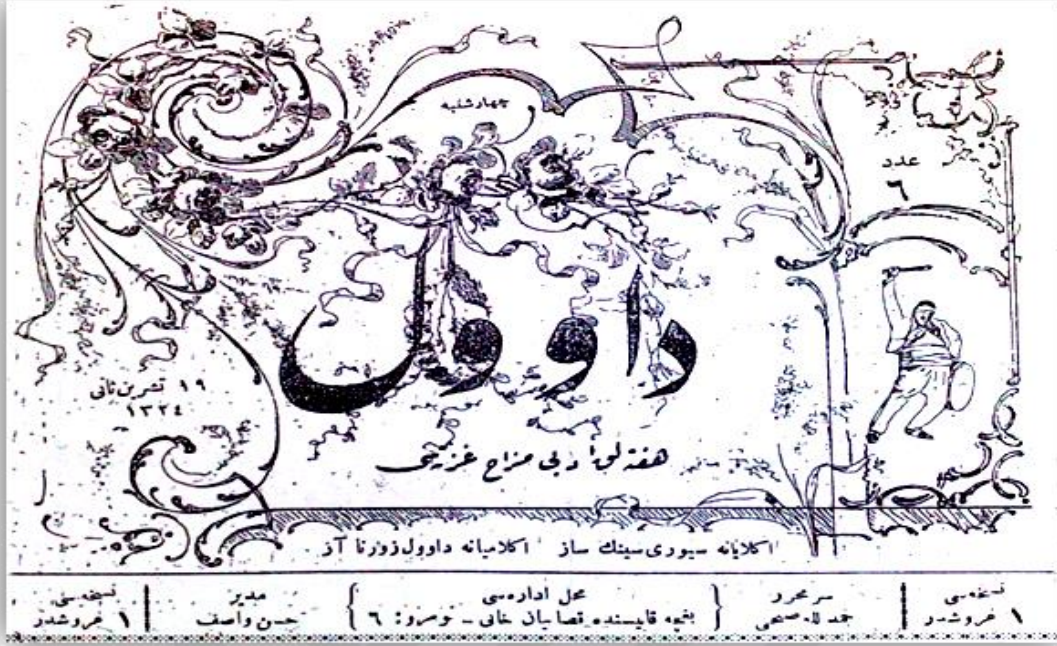 چهارشنبه
عدد
٦
داوول
١٩ تشرين ثانى
١٣٢٤
هفته‌لق ادبى مزاح غزته‌سى
اكلايانه سيورى سينك ساز اكلاميانه داوول زورنا آز
نسخه‌سى
١ غروشدر
سر محرر
حمد الله صبحى
محل اداره‌سى
بغچه قاپيسنده قصابيان خانى ـ نومرو: ٦
مدير
حسن واصف
نسخه‌سى
١ غروشدر